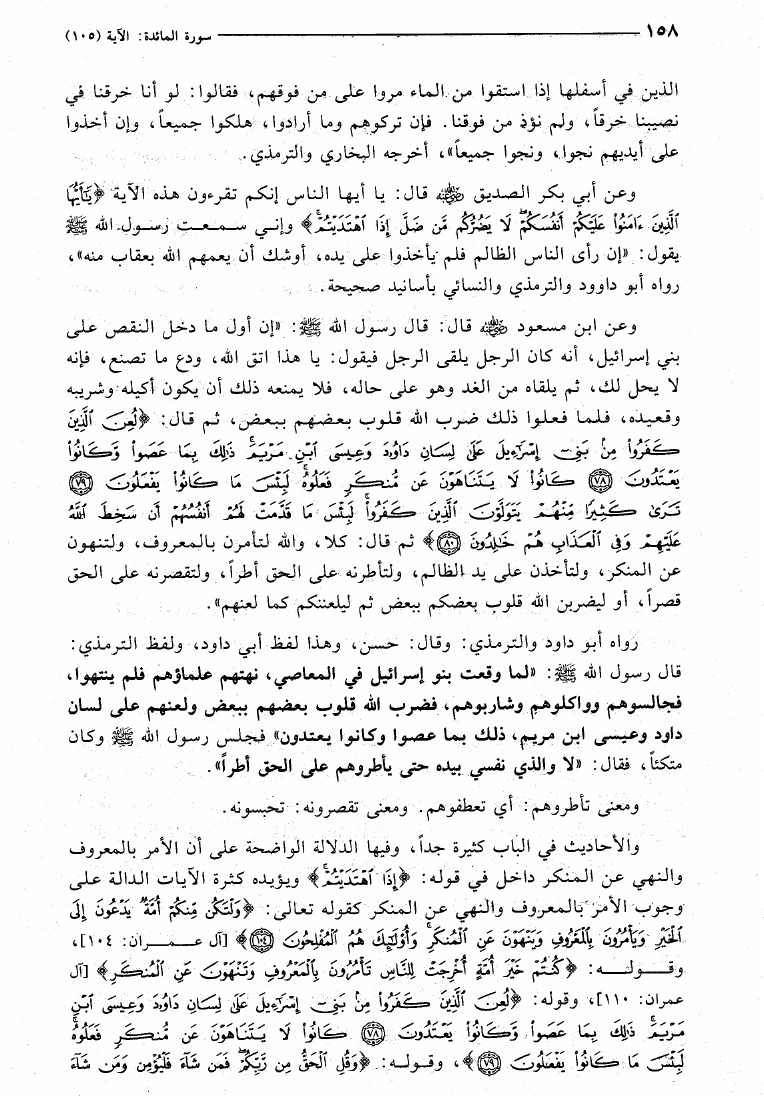 ١٥٨ سورة المائدة: الآية (١٠٥)
الذين في أسفلها إذا استقوا من الماء مروا على من فوقهم، فقالوا: لو أنا خرقنا في
نصيبنا خرقاً، ولم نؤذِ من فوقنا. فإن تركوهم وما أرادوا، هلكوا جميعاً، وإن أخذوا
على أيديهم نجوا، ونجوا جميعاً»، أخرجه البخاري والترمذي.
وعن أبي بكر الصديق رضي الله عنه قال: يا أيها الناس إنكم تقرءون هذه الآية ﴿يَٰٓأَيُّهَا
ٱلَّذِينَ ءَامَنُوا۟ عَلَيْكُمْ أَنفُسَكُمْ ۖ لَا يَضُرُّكُم مَّن ضَلَّ إِذَا ٱهْتَدَيْتُمْ ۚ﴾ وإني سمعت رسول الله ﷺ
يقول: «إن رأى الناس الظالم فلم يأخذوا على يده، أوشك أن يعمهم الله بعقاب منه»،
رواه أبو داوود والترمذي والنسائي بأسانيد صحيحة.
وعن ابن مسعود رضي الله عنه قال: قال رسول الله ﷺ: «إن أول ما دخل النقص على
بني إسرائيل، أنه كان الرجل يلقى الرجل فيقول: يا هذا اتق الله، ودع ما تصنع، فإنه
لا يحل لك، ثم يلقاه من الغد وهو على حاله، فلا يمنعه ذلك أن يكون أكيله وشريبه
وقعيده، فلما فعلوا ذلك ضرب الله قلوب بعضهم ببعض، ثم قال: ﴿لُعِنَ ٱلَّذِينَ
كَفَرُوا۟ مِنۢ بَنِىٓ إِسْرَٰٓءِيلَ عَلَىٰ لِسَانِ دَاوُۥدَ وَعِيسَى ٱبْنِ مَرْيَمَ ۚ ذَٰلِكَ بِمَا عَصَوا۟ وَّكَانُوا۟
يَعْتَدُونَ ﴿٧٨﴾ كَانُوا۟ لَا يَتَنَاهَوْنَ عَن مُّنكَرٍ فَعَلُوهُ ۚ لَبِئْسَ مَا كَانُوا۟ يَفْعَلُونَ ﴿٧٩﴾
تَرَىٰ كَثِيرًا مِّنْهُمْ يَتَوَلَّوْنَ ٱلَّذِينَ كَفَرُوا۟ ۚ لَبِئْسَ مَا قَدَّمَتْ لَهُمْ أَنفُسُهُمْ أَن سَخِطَ ٱللَّهُ
عَلَيْهِمْ وَفِى ٱلْعَذَابِ هُمْ خَٰلِدُونَ ﴿٨٠﴾﴾ ثم قال: كلا، والله لتأمرن بالمعروف، ولتنهون
عن المنكر، ولتأخذن على يد الظالم، ولتأطرنه على الحق أطراً، ولتقصرنه على الحق
قصراً، أو ليضربن الله قلوب بعضكم ببعض ثم ليلعننكم كما لعنهم».
رواه أبو داود والترمذي: وقال: حسن، وهذا لفظ أبي داود، ولفظ الترمذي:
قال رسول الله ﷺ: «لما وقعت بنو إسرائيل في المعاصي، نهتهم علماؤهم فلم ينتهوا،
فجالسوهم وواكلوهم وشاربوهم، فضرب الله قلوب بعضهم ببعض ولعنهم على لسان
داود وعيسى ابن مريم، ذلك بما عصوا وكانوا يعتدون» فجلس رسول الله ﷺ وكان
متكئاً، فقال: «لا والذي نفسي بيده حتى يأطروهم على الحق أطراً».
ومعنى تأطروهم: أي تعطفوهم. ومعنى تقصرونه: تحبسونه.
والأحاديث في الباب كثيرة جداً، وفيها الدلالة الواضحة على أن الأمر بالمعروف
والنهي عن المنكر داخل في قوله: ﴿إِذَا ٱهْتَدَيْتُمْ ۚ﴾ ويؤيده كثرة الآيات الدالة على
وجوب الأمر بالمعروف والنهي عن المنكر كقوله تعالى: ﴿وَلْتَكُن مِّنكُمْ أُمَّةٌ يَدْعُونَ إِلَى
ٱلْخَيْرِ وَيَأْمُرُونَ بِٱلْمَعْرُوفِ وَيَنْهَوْنَ عَنِ ٱلْمُنكَرِ ۚ وَأُو۟لَٰٓئِكَ هُمُ ٱلْمُفْلِحُونَ ﴿١٠٤﴾﴾ [آل عمران: ١٠٤]،
وقوله: ﴿كُنتُمْ خَيْرَ أُمَّةٍ أُخْرِجَتْ لِلنَّاسِ تَأْمُرُونَ بِٱلْمَعْرُوفِ وَتَنْهَوْنَ عَنِ ٱلْمُنكَرِ﴾ [آل
عمران: ١١٠]، وقوله: ﴿لُعِنَ ٱلَّذِينَ كَفَرُوا۟ مِنۢ بَنِىٓ إِسْرَٰٓءِيلَ عَلَىٰ لِسَانِ دَاوُۥدَ وَعِيسَى ٱبْنِ
مَرْيَمَ ۚ ذَٰلِكَ بِمَا عَصَوا۟ وَّكَانُوا۟ يَعْتَدُونَ ﴿٧٨﴾ كَانُوا۟ لَا يَتَنَاهَوْنَ عَن مُّنكَرٍ فَعَلُوهُ ۚ
لَبِئْسَ مَا كَانُوا۟ يَفْعَلُونَ ﴿٧٩﴾﴾، وقوله: ﴿وَقُلِ ٱلْحَقُّ مِن رَّبِّكُمْ ۖ فَمَن شَآءَ فَلْيُؤْمِن وَمَن شَآءَ